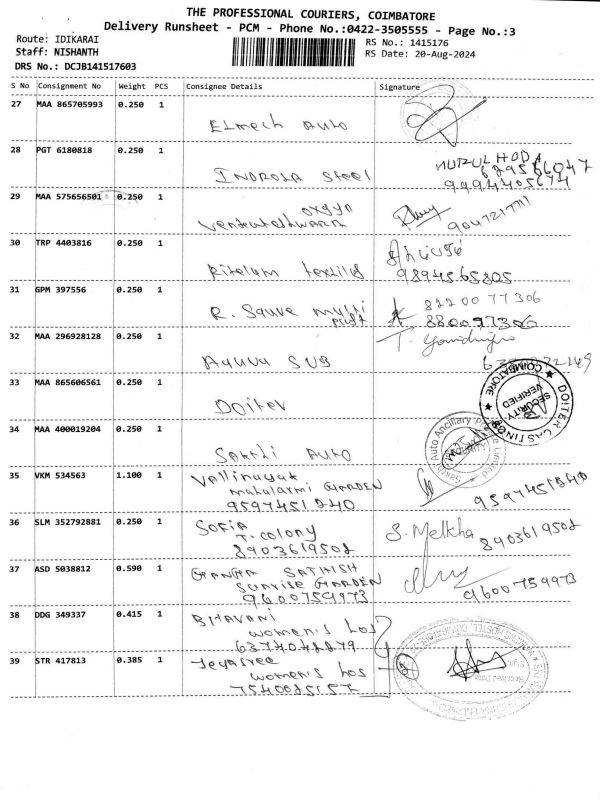 THE PROFESSIONAL COURIERS, COIMBATORE
Delivery Runsheet - PCM - Phone No.:0422-3505555 - Page No.:3
Route: IDIKARAI
RS No.: 1415176
Staff: NISHANTH
RS Date: 20-Aug-2024
DRS No.: DCJB141517603
S No Consignment No Weight PCS Consignee Details Signature
27 MAA 865705993 0.250 1
Elmech Auto
28 PGT 6180818 0.250 1
INDROLA Steel
9994405674
29 MAA 575656501 0.250 1
Venkateshwara
30 TRP 4403816 0.250 1
textiles
9894565805
31 GPM 397556 0.250 1
8220077306
R. Sauve multi
32 MAA 296928128 0.250 1
Aquva SUB
33 MAA 865606561 0.250 1
COIMBATORE
SECURITY
VERIFIED
DOITER CASTING
34 MAA 400019204 0.250 1
Sakthi Auto
Sakthi Auto Ancillary Private Limited
35 VKM 534563 1.100 1
Vallinayak
mahalaxmi GARDEN
9597451840
9597451840
36 SLM 352792881 0.250 1
Sofia
T. colony
8903619502
S. Melkha
8903619502
37 ASD 5038812 0.590 1
GANGA SATHISH
Sunrise GARDEN
9600759973
9600759973
38 DDG 349337 0.415 1
BHAVANI
women's Hos
39 STR 417813 0.385 1
Jeyasree
women's Hos